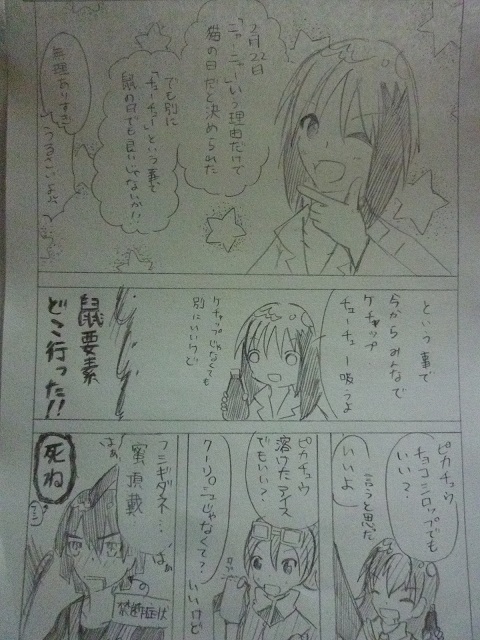 2月22日
「ニャーニャー」いう理由だけで
猫の日だと決められた
でも別に
「チューチュー」という事で
鼠の日でも良いじゃないか!!
無理ありすぎ
うるさいよぉ
という事で
今からみんなで
ケチャップ
チューチュー吸うよ
ケチャップじゃなくても
別にいいけど
鼠要素
どこ行った!!
ピカチュウ
チョコシロップでも
いい?
言うと思った
いいよ
ピカチュウ
溶けたアイス
でもいい?
クーリッシュじゃなくて?
いいけど
フシギダネ…
蜜頂戴
はぁ
はぁ
死ね
禁断症状